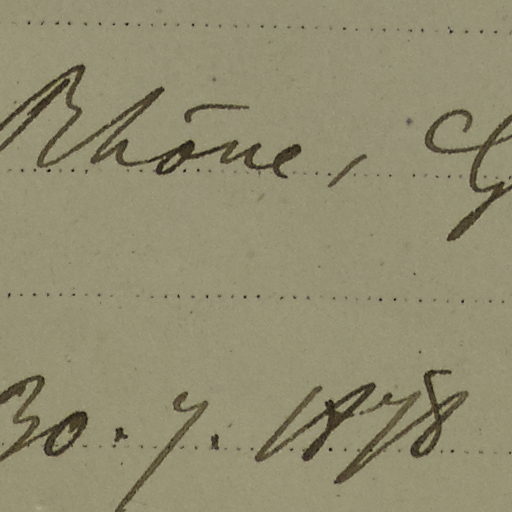 Rhône,
30. 7. 1878